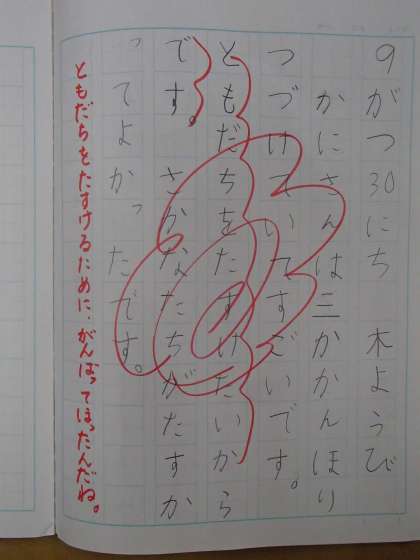 9がつ30にち 木ようび
かにさんは三かかんほり
つづけていてすごいです。
ともだちをたすけたいから
です。さかなたちがたすか
ってよかったです。
ともだちをたすけるために、がんばってほったんだね。